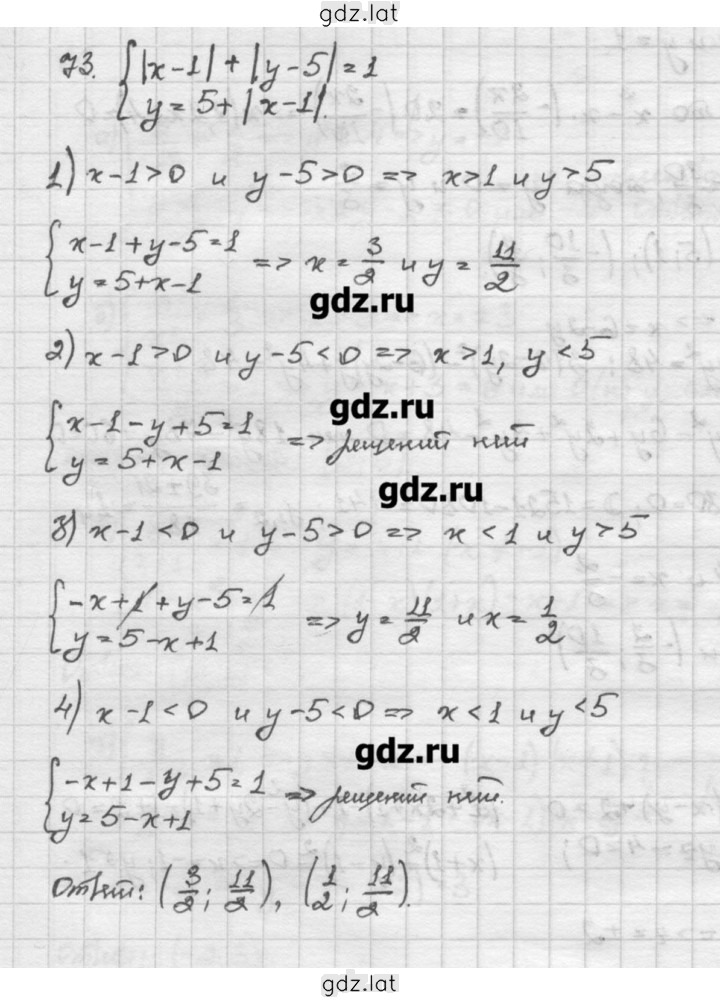 gdz.lat
73. {|x-1|+|y-5|=1
{y=5+|x-1|.
1) x-1>0 и y-5>0 => x>1 и y>5
{x-1+y-5=1
{y=5+x-1 => x=3/2 и y=11/2
gdz.ru
2) x-1>0 и y-5<0 => x>1, y<5
gdz.ru
{x-1-y+5=1
{y=5+x-1 => решений нет
gdz.ru
3) x-1<0 и y-5>0 => x<1 и y>5
{-x+1+y-5=1
{y=5-x+1 => y=11/2 и x=1/2
4) x-1<0 и y-5<0 => x<1 и y<5
gdz.ru
{-x+1-y+5=1
{y=5-x+1 => решений нет.
Ответ: (3/2; 11/2), (1/2; 11/2).
gdz.lat